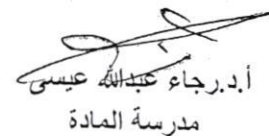 أ.د.رجاء عبدالله عيسى
مدرسة المادة